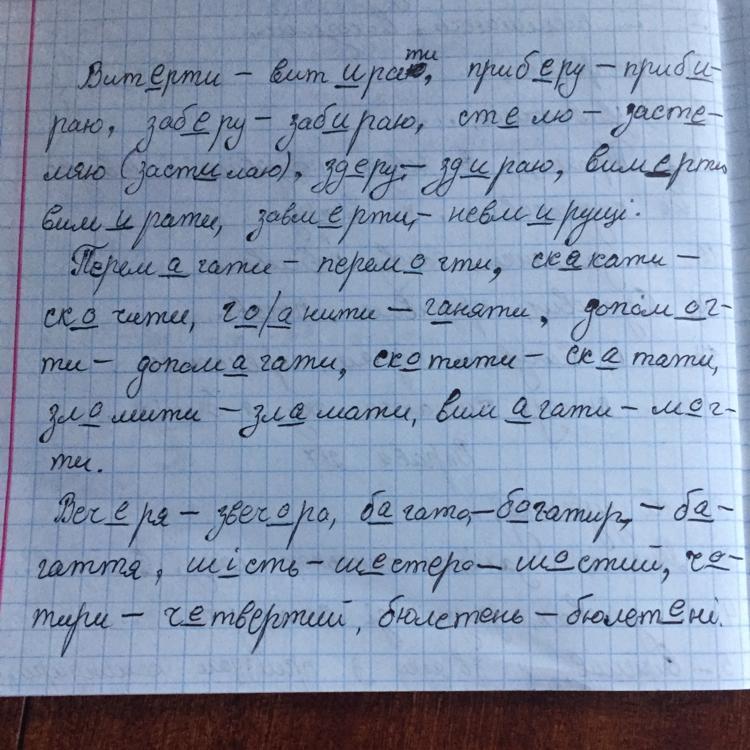 Витерти – витирати, приберу – приби-
раю, заберу – забираю, стелю – засте-
ляю (застилаю), здеру, – здираю, вимерти
вимирати, завмерти, – невмирущі.
Перемагати – перемогти, скакати –
скочити, го/анити – ганяти, допомог-
ти – допомагати, скотити – скатати,
зломити – зламати, вимагати – мог-
ти.
Вечеря – звечора, багато, – богатир, – ба-
гаття, шість – шестеро – шостий, чо-
тири – четвертий, бюлетень – бюлетені.